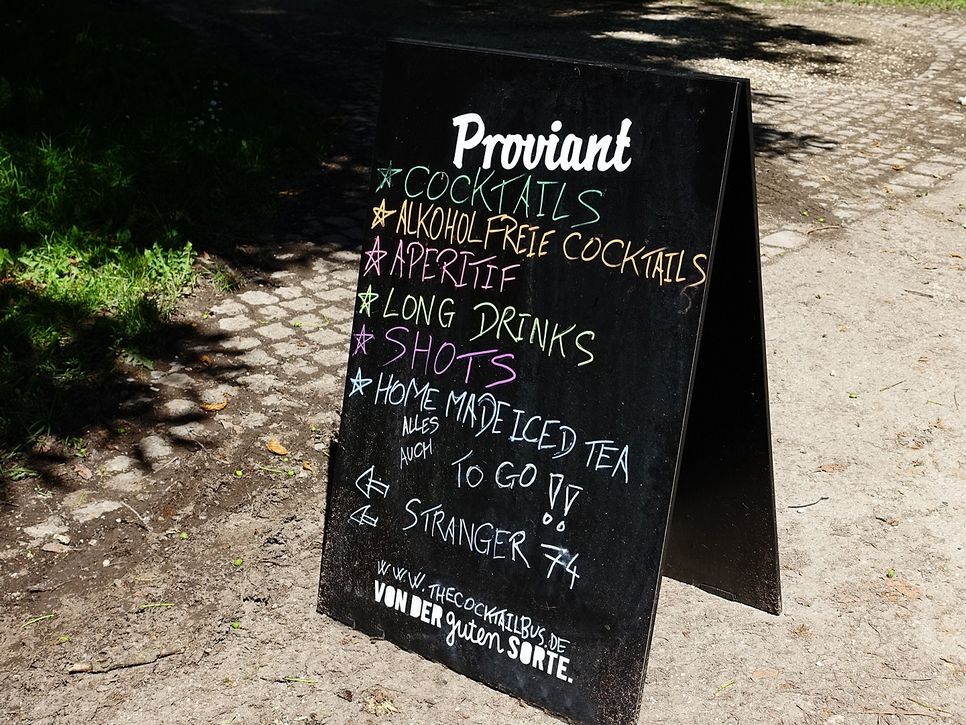 Proviant
COCKTAILS
ALKOHOLFREIE COCKTAILS
APERITIF
LONG DRINKS
SHOTS
HOME MADE ICED TEA
ALLES
AUCH
TO GO !!
STRANGER 74
WWW.THECOCKTAILBUS.DE
VON DER guten SORTE.